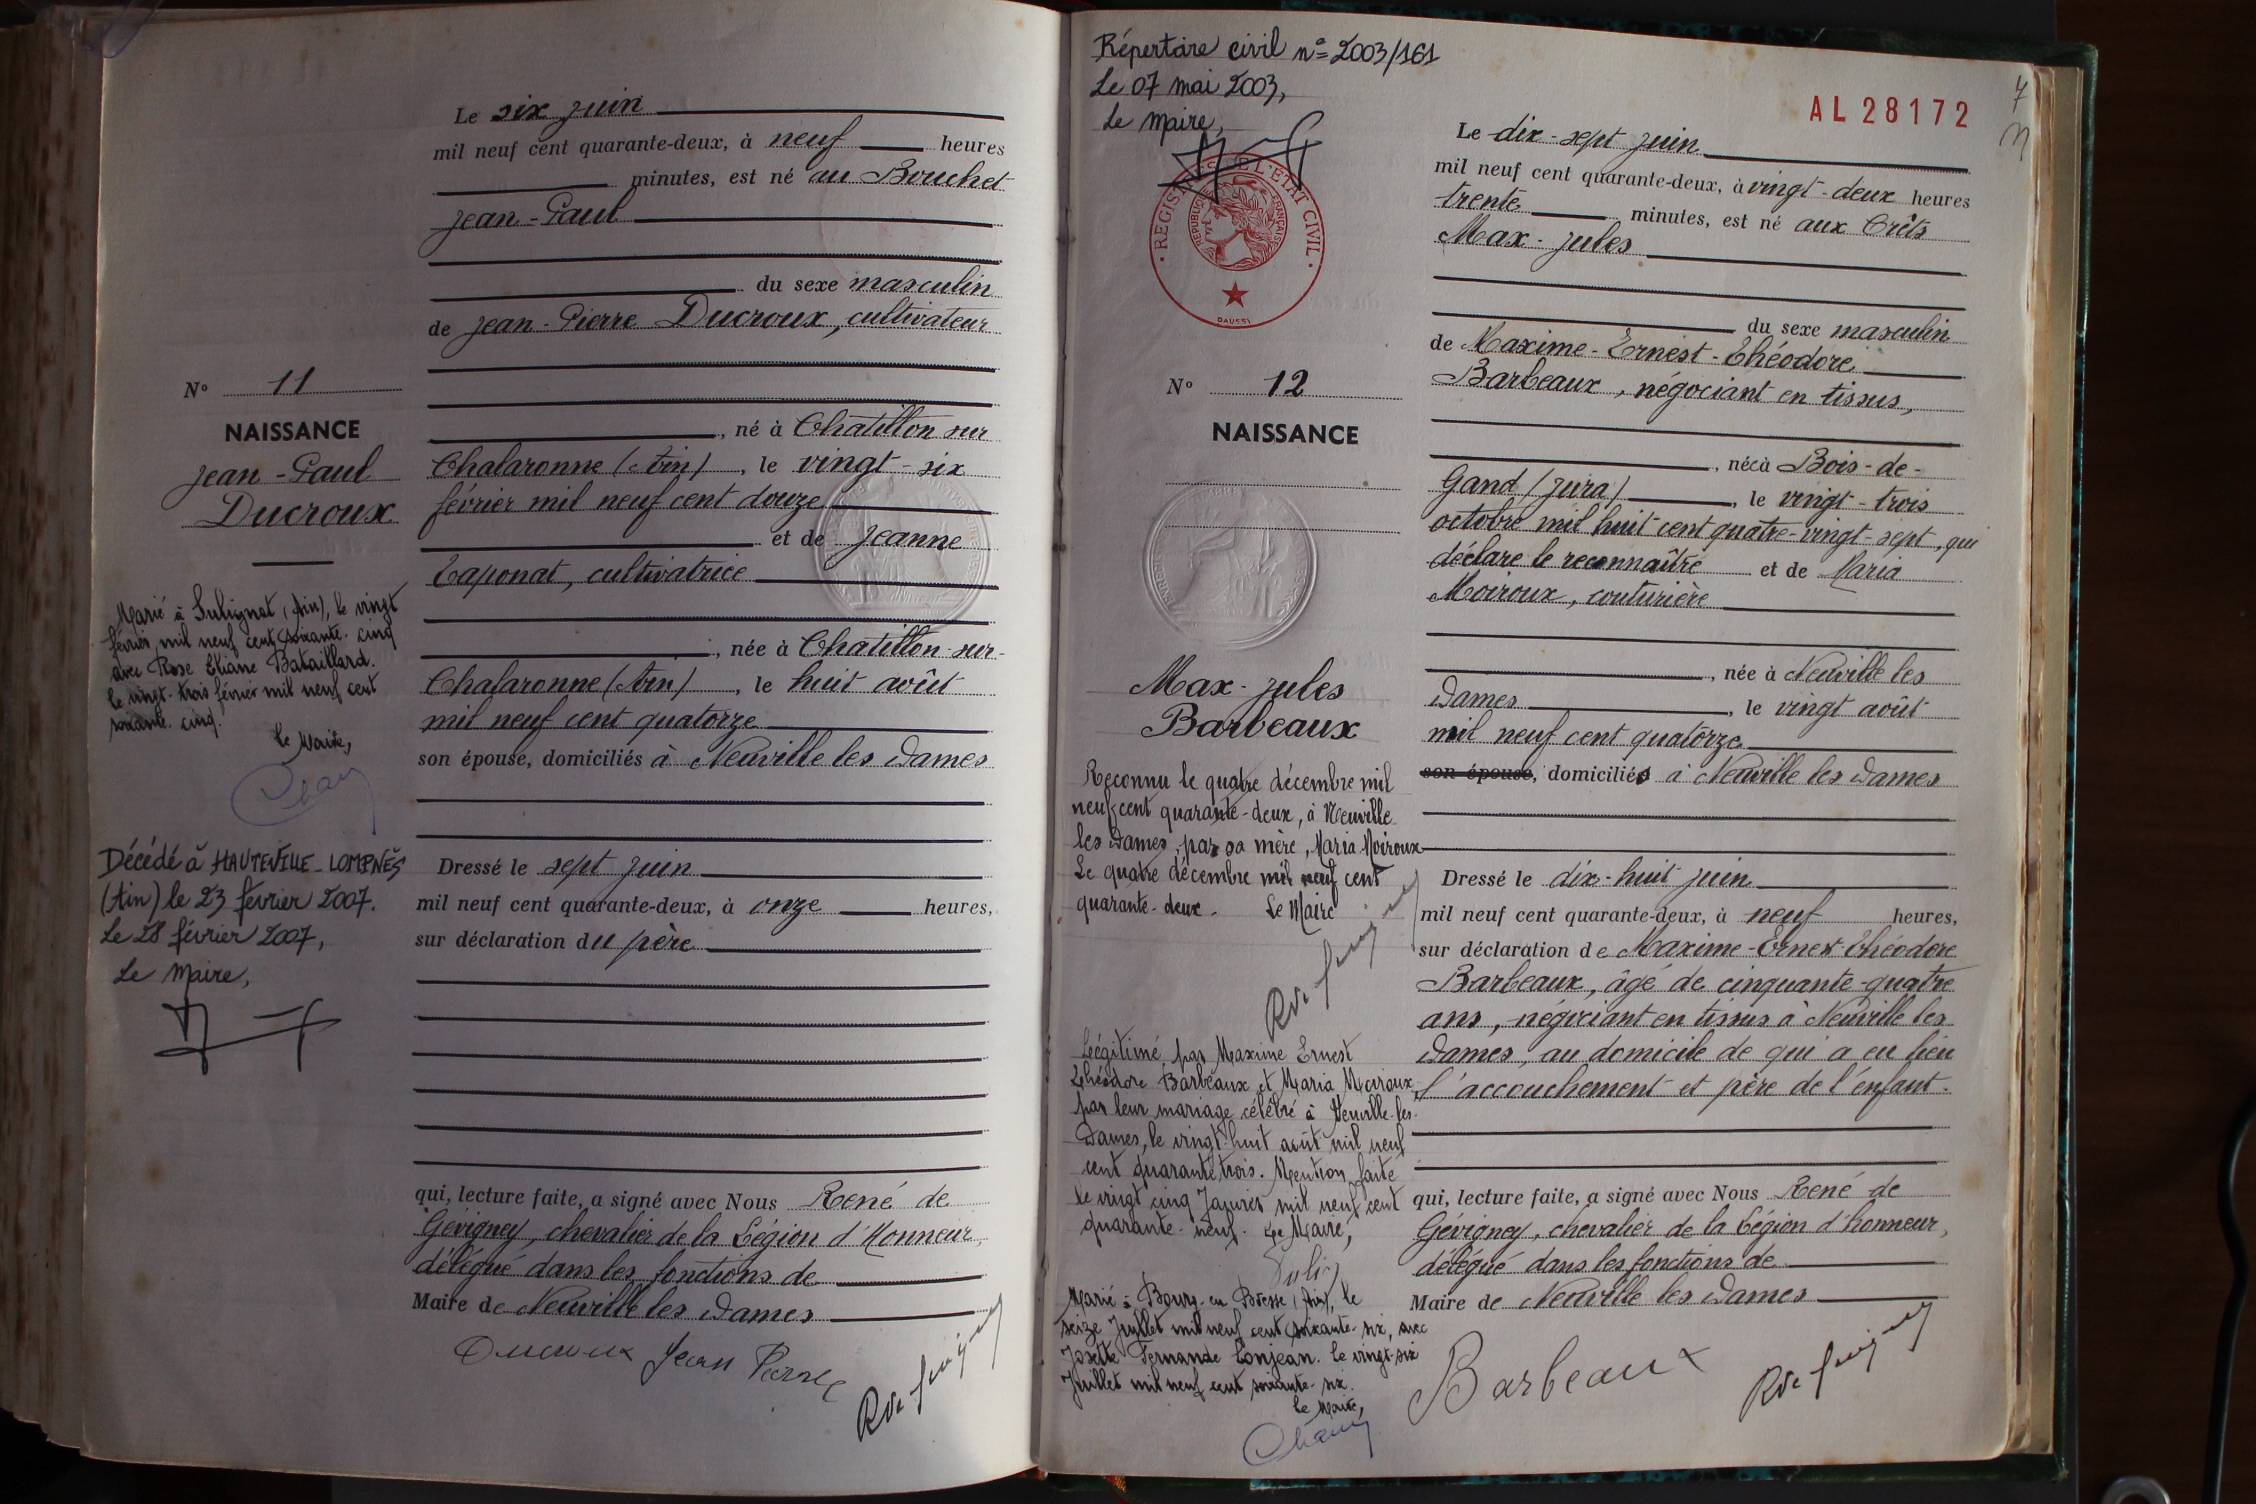 Le six juin
mil neuf cent quarante-deux, à neuf heures
minutes, est né au Bouchet
Jean-Paul
du sexe masculin
de Jean-Pierre Ducroux, cultivateur
, né à Chatillon sur
Chalaronne (Ain), le vingt-six
février mil neuf cent douze
et de Jeanne
Taponat, cultivatrice
, née à Chatillon-sur-
Chalaronne (Ain), le huit août
mil neuf cent quatorze
son épouse, domiciliés à Neuville les Dames
Dressé le sept juin
mil neuf cent quarante-deux, à onze heures,
sur déclaration du père
qui, lecture faite, a signé avec Nous René de
Gévigney, chevalier de la Légion d'Honneur,
délégué dans les fonctions de
Maire de Neuville les Dames
Ducroux Jean Pierre
N° 11
NAISSANCE
Jean-Paul
Ducroux
Marié à Sulignat (Ain), le vingt
février mil neuf cent soixante-cinq
avec Rose Eliane Bataillard.
le vingt-trois février mil neuf cent
soixante-cinq.
le Maire,
Décédé à HAUTEVILLE-LOMPNES
(Ain) le 23 février 2007.
Le 28 février 2007,
Le Maire,
Répertoire civil n°=2003/161
Le 07 mai 2003,
Le Maire,
REGISTRES DE L'ETAT CIVIL
REPUBLIQUE FRANÇAISE
DAUSSI
N° 12
NAISSANCE
Max-Jules
Barbeaux
Reconnu le quatre décembre mil
neuf cent quarante-deux, à Neuville
les Dames, par sa mère, Maria Moiroux
Le quatre décembre mil neuf cent
quarante-deux. Le Maire
Légitimé par Maxime Ernest
Théodore Barbeaux et Maria Moiroux
par leur mariage célébré à Neuville-les-
Dames, le vingt huit août mil neuf
cent quarante trois. Mention faite
le vingt cinq Janvier mil neuf cent
quarante-neuf. Le Maire,
Marié à Bourg-en Bresse (Ain), le
seize Juillet mil neuf cent soixante-six, avec
Josette Fernande Conjean. le vingt-six
Juillet mil neuf cent soixante-six.
le Maire,
AL 28172
7
Le dix-sept juin
mil neuf cent quarante-deux, à vingt-deux heures
trente minutes, est né aux Crêts
Max-Jules
du sexe masculin
de Maxime-Ernest-Théodore
Barbeaux, négociant en tissus,
, né à Bois-de-
Gand (Jura), le vingt-trois
octobre mil huit cent quatre-vingt-sept, qui
déclare le reconnaître et de Maria
Moiroux, couturière
, née à Neuville les
Dames, le vingt août
mil neuf cent quatorze
son épouse, domiciliés à Neuville les Dames
Dressé le dix-huit juin
mil neuf cent quarante-deux, à neuf heures,
sur déclaration de Maxime-Ernest-Théodore
Barbeaux, âgé de cinquante-quatre
ans, négociant en tissus à Neuville les
Dames, au domicile de qui a eu lieu
l'accouchement et père de l'enfant.
qui, lecture faite, a signé avec Nous René de
Gévigney, chevalier de la Légion d'honneur,
délégué dans les fonctions de
Maire de Neuville les Dames
Barbeaux